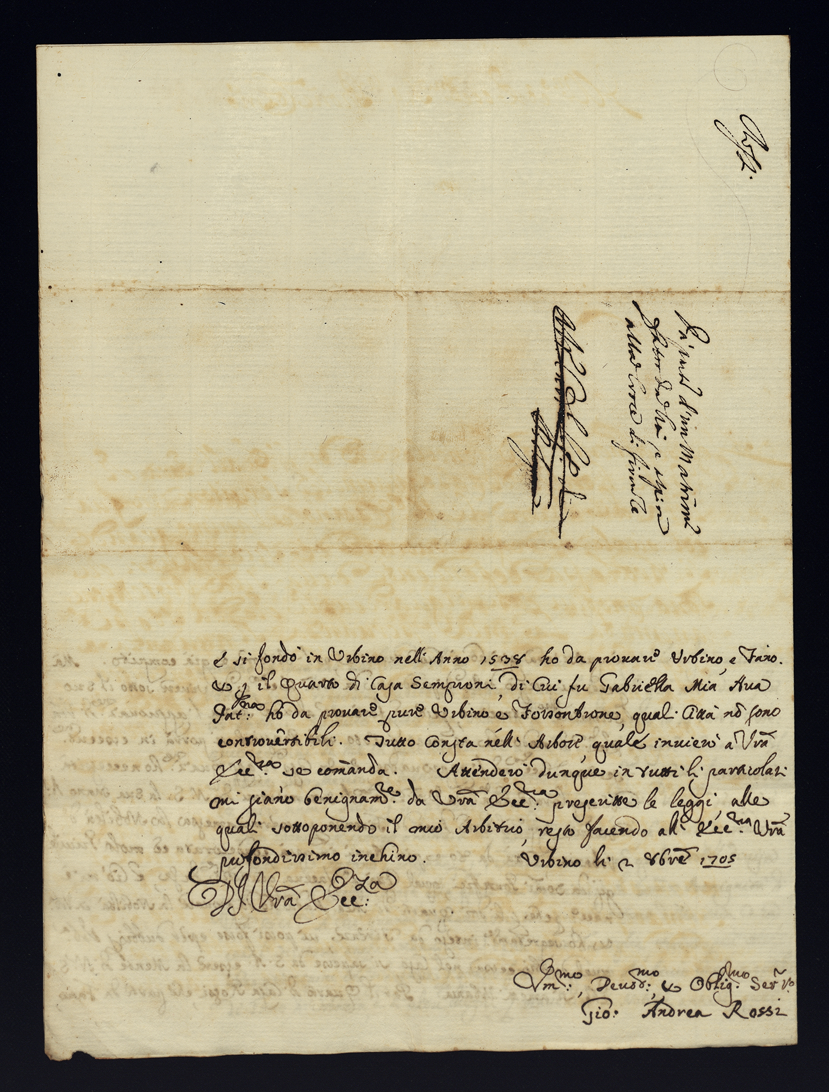 e si fondò in Urbino nell'Anno 1538 ho da provare Urbino, e Fano.
e il Quarto di Casa Semproni, di Cui fu Gabriella Mia Ava
Pat:rna hò da provare pure Urbino e Fossombrone, qual Città nō sono
controvertibili. Tutto Consta nell'Arbore quale invierò a Vrã
Ecc:za se comãnda. Attenderò dunque in tutti li particolari
mi siano benignam:te da Vrã Ecc:za prescritte le leggi, alle
quali sottoponendo il mio Arbitrio, resto facendo all'Ecc:za Vrã
profondissimo inchino. Urbino li 2 8bre 1705
Di Vrã Ecc:za
Vm:mo, Devod:mo, e Oblig:mo Ser:re
Gio: Andrea Rossi
alla Croce di